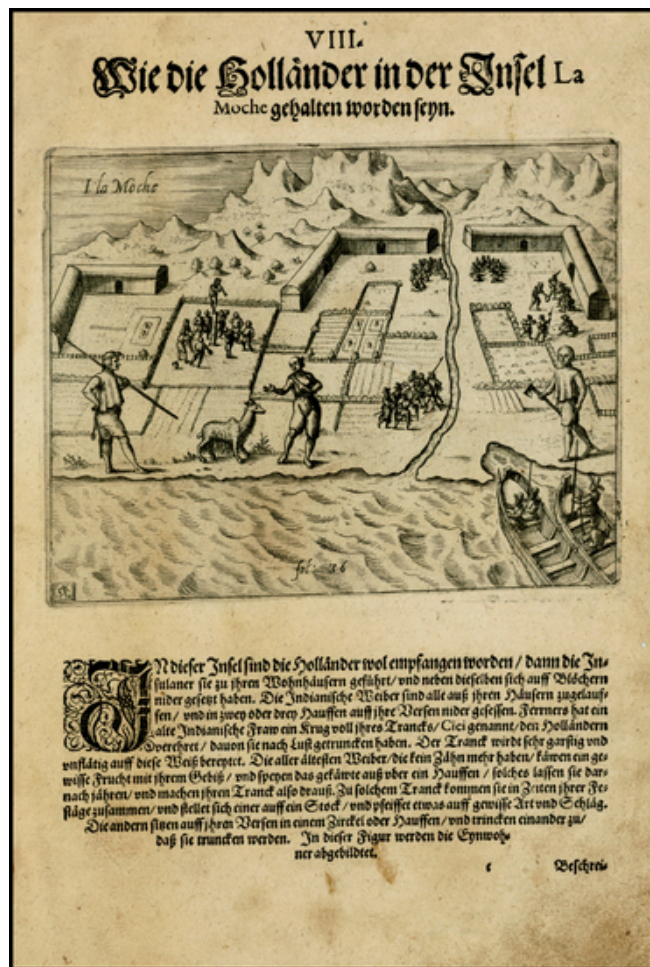 VIII.
Wie die Holländer in der Insel La
Moche gehalten worden seyn.
I la Moche
fol: 36
IN dieser Insel sind die Holländer wol empfangen worden / dann die In-
sulaner sie zu jhren Wohnhäusern geführt / vnd neben dieselben sich auff Blöchern
nider gesetzt haben. Die Indianische Weiber sind alle auß jhren Häusern zugelauf-
fen / vnd in zwey oder drey Hauffen auff jhre Versen nider gesessen. Ferrners hat ein
alte Indianische Fraw ein Krug voll jhres Trancks / Cici genannt / den Holländern
verehret / dauon sie nach Lust getruncken haben. Der Tranck wirdt sehr garstig vnd
vnflätig auff diese Weiß bereytet. Die aller ältesten Weiber / die kein Zähn mehr haben / käwen ein ge-
wisse Frucht mit jhrem Gebiß / vnd speyen das gekäwte auß vber ein Hauffen / solches lassen sie dar-
nach jähren / vnd machen jhren Tranck also drauß. Zu solchem Tranck kommen sie in Zeiten jhrer Fe-
stäge zusammen / vnd stellet sich einer auff ein Stock / vnd pfeiffet etwas auff gewisse Art vnd Schläg.
Die andern sitzen auff jhren Versen in einem Zirckel oder Hauffen / vnd trincken einander zu /
daß sie truncken werden. In dieser Figur werden die Eynwoh-
ner abgebildtet.
Beschrei-